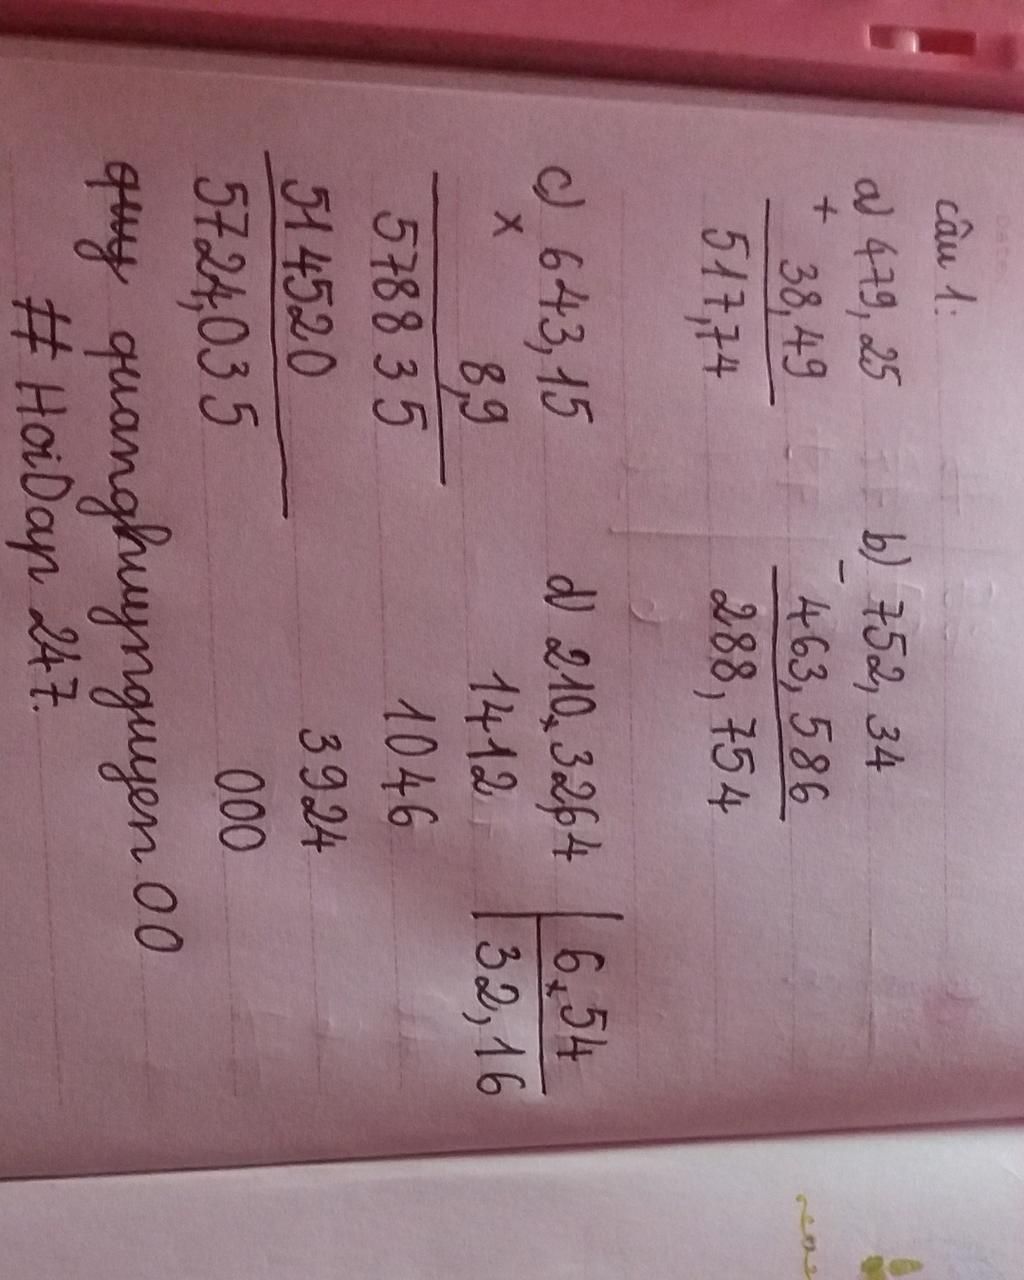 câu 1:
a) 479,25 b) 752,34
+ 38,49 - 463,586
517,74 288,754
c) 643,15 d) 210,32,64 | 6,54
x 8,9 1412 32,16
578835 1046
514520 3924
5724,035 000
quy quanghuynguyen00
# HoiDap 247.